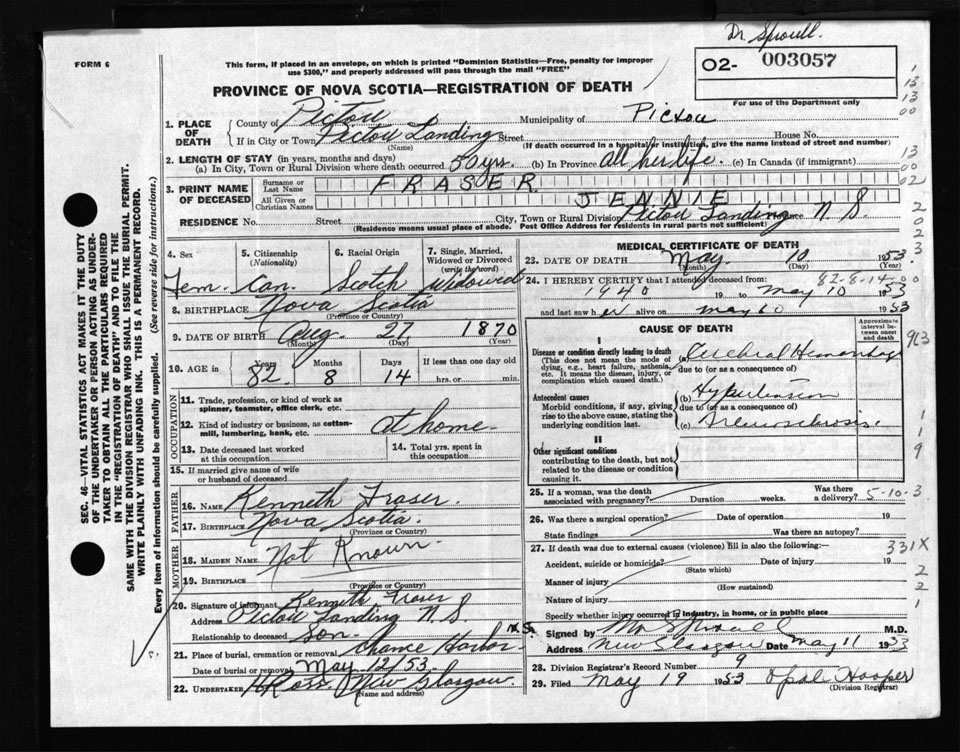 Dr Sproull.
FORM 6
This form, if placed in an envelope, on which is printed "Dominion Statistics—Free, penalty for improper
use $300," and properly addressed will pass through the mail "FREE"
02- 003057
For use of the Department only
PROVINCE OF NOVA SCOTIA—REGISTRATION OF DEATH
1. PLACE OF DEATH
County of Pictou Municipality of Pictou
If in City or Town Pictou Landing Street House No.
(Name) (If death occurred in a hospital or institution, give the name instead of street and number)
2. LENGTH OF STAY (in years, months and days)
(a) In City, Town or Rural Division where death occurred. 50 yrs. (b) In Province All her life. (c) In Canada (if immigrant)
3. PRINT NAME OF DECEASED
Surname or Last Name FRASER
All Given or Christian Names JENNIE
RESIDENCE No. Street City, Town or Rural Division Pictou Landing Province N. S.
(Residence means usual place of abode. Post Office Address for residents in rural parts not sufficient)
4. Sex
Fem.
5. Citizenship
(Nationality)
Can.
6. Racial Origin
Scotch
7. Single, Married, Widowed or Divorced
(write the word)
Widowed
8. BIRTHPLACE Nova Scotia
(Province or Country)
9. DATE OF BIRTH Aug. 27 1870
(Month) (Day) (Year)
10. AGE in Years Months Days If less than one day old
82 8 14 hrs. or min.
OCCUPATION
11. Trade, profession, or kind of work as
spinner, teamster, office clerk, etc.
12. Kind of industry or business, as cotton-
mill, lumbering, bank, etc. at home
13. Date deceased last worked
at this occupation
14. Total yrs. spent in
this occupation
15. If married give name of wife
or husband of deceased
FATHER
16. NAME Kenneth Fraser.
17. BIRTHPLACE Nova Scotia.
(Province or Country)
MOTHER
18. MAIDEN NAME Not Known.
19. BIRTHPLACE
(Province or Country)
20. Signature of informant Kenneth Fraser
Address Pictou Landing N. S.
Relationship to deceased Son.
21. Place of burial, cremation or removal Chance Harbor N.S.
Date of burial or removal May 12/53.
22. UNDERTAKER Ross. New Glasgow.
(Name and address)
MEDICAL CERTIFICATE OF DEATH
23. DATE OF DEATH May 10 1953
(Month) (Day) (Year)
82-8-14
24. I HEREBY CERTIFY that I attended deceased from:
1940 19 to May 10 1953
and last saw her alive on May 10 1953
CAUSE OF DEATH
Approximate interval between onset and death
I
Disease or condition directly leading to death
(This does not mean the mode of
dying, e.g., heart failure, asthenia,
etc. It means the disease, injury, or
complication which caused death.)
(a) Cerebral Hemorrhage
due to (or as a consequence of)
Antecedent causes
Morbid conditions, if any, giving
rise to the above cause, stating the
underlying condition last.
(b) Hypertension
due to (or as a consequence of)
(c) Arteriosclerosis.
II
Other significant conditions
contributing to the death, but not
related to the disease or condition
causing it.
25. If a woman, was the death
associated with pregnancy? Duration weeks. Was there a delivery? 5-10-3
26. Was there a surgical operation? Date of operation 19
State findings Was there an autopsy?
27. If death was due to external causes (violence) fill in also the following:— 331X
Accident, suicide or homicide? Date of injury 19
(State which)
Manner of injury
(How sustained)
Nature of injury
Specify whether injury occurred in industry, in home, or in public place
Signed by Sproull M.D.
Address New Glasgow Date May 11 1953
28. Division Registrar's Record Number 9
29. Filed May 19 1953 Opal Hooper
(Division Registrar)
SEC. 46—VITAL STATISTICS ACT MAKES IT THE DUTY
OF THE UNDERTAKER OR PERSON ACTING AS UNDER-
TAKER TO OBTAIN ALL THE PARTICULARS REQUIRED
IN THE "REGISTRATION OF DEATH" AND TO FILE THE
SAME WITH THE DIVISION REGISTRAR WHO SHALL ISSUE THE BURIAL PERMIT.
WRITE PLAINLY WITH UNFADING INK. THIS IS A PERMANENT RECORD.
Every item of information should be carefully supplied. (See reverse side for instructions.)
1
13
13
00
13
02
2
0
2
3
0
963
1
9
2
2
1